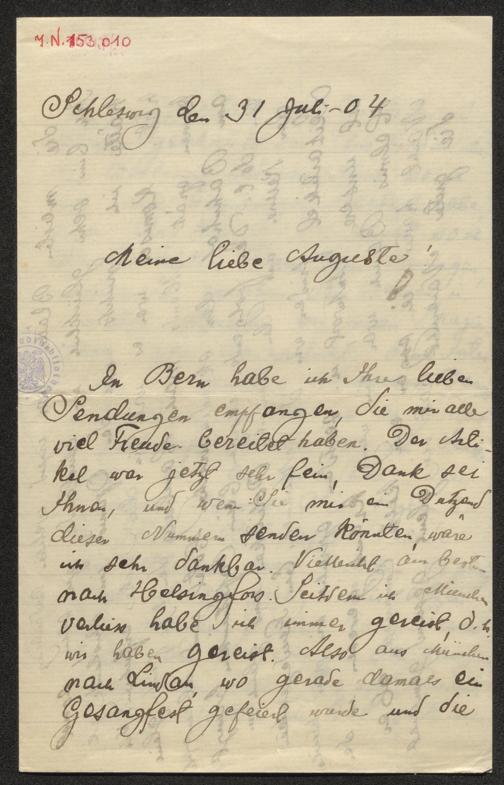 J.N. 153.010
Schleswig den 31 Juli -04
Meine liebe Auguste!
In Bern habe ich Ihre lieben
Sendungen empfangen, die mir alle
viel Freuden bereitet haben. Der Arti-
kel war jetzt sehr fein, Dank sei
Ihnen, und wenn Sie mir ein Dutzend
dieser Nummern senden könnten, wäre
ich sehr dankbar. Vielleicht am besten
nach Helsingfors. Seitdem ich München
verliess habe ich immer gereist, d.h.
wir haben gereist. Also aus München
nach Lindau, wo gerade damals ein
Gesangfest gefeiert wurde und die